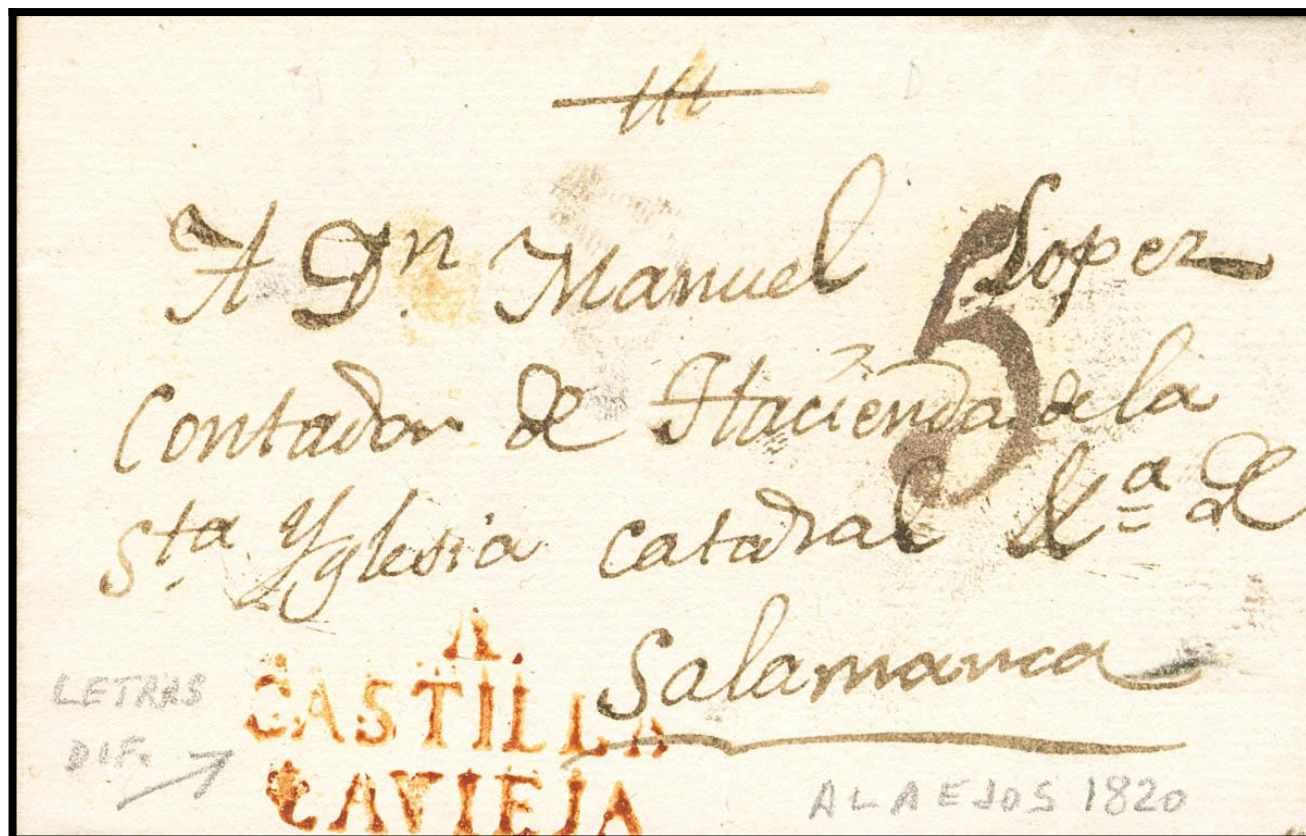 A Dn. Manuel Lopez
5
Contador de Hacienda de la
Sta Yglesia catadral &a de
Salamanca
A.
CASTILLA
LAVIEJA
LETRAS
DIF.
ALAEJOS 1820